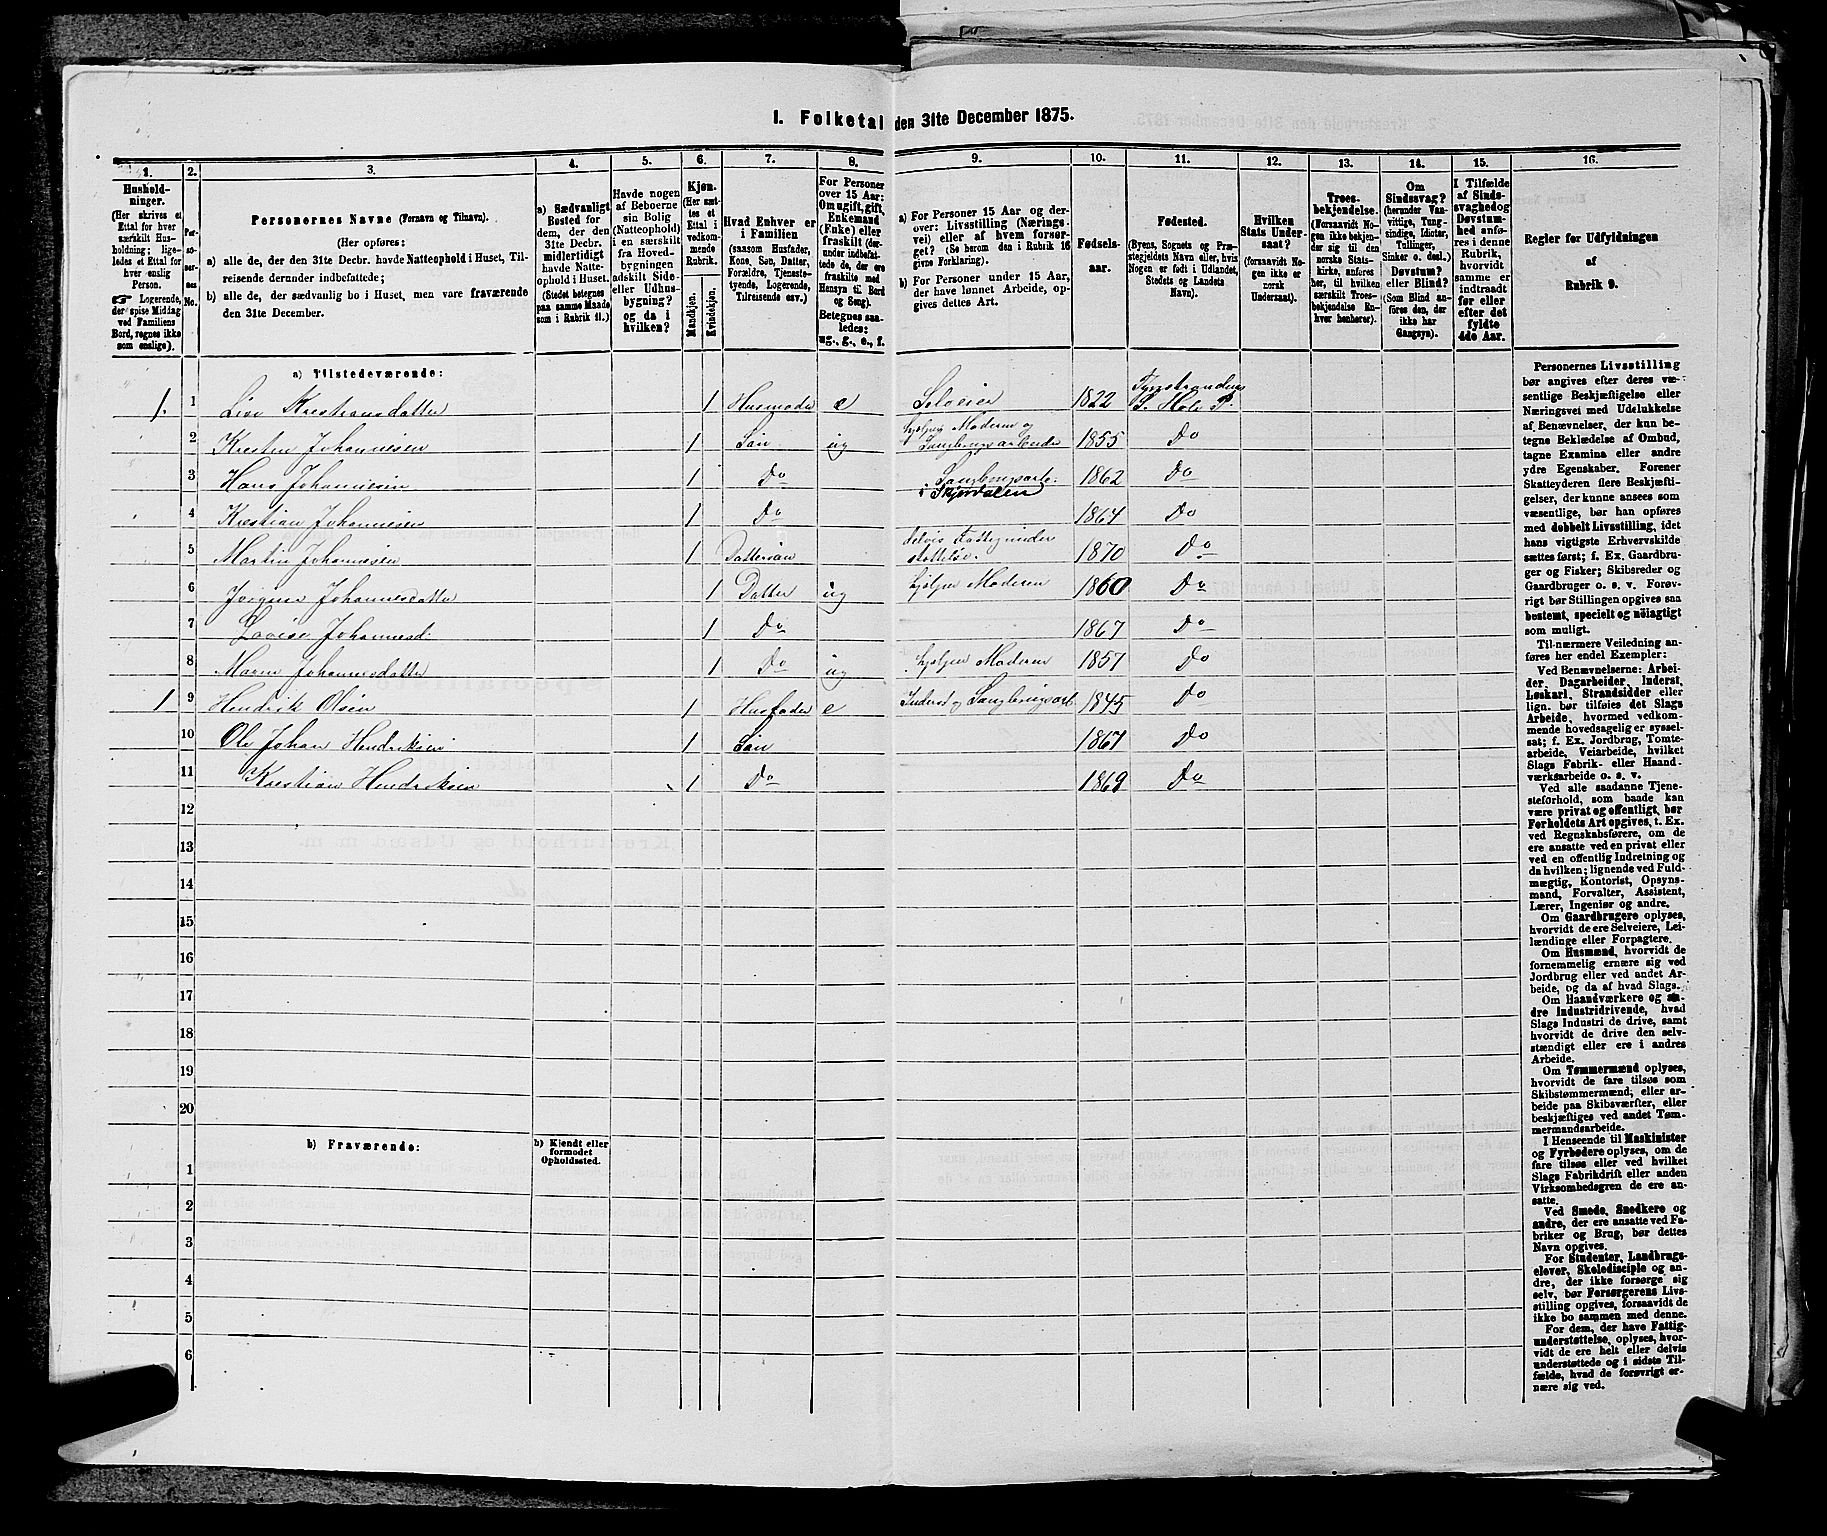 I. Folketal den 31te December 1875.
1. 2. 3. 4. 5. 6. 7. 8. 9. 10. 11. 12. 13. 14. 15. 16.
Hushold-
ninger.
(Her skrives et
Ettal for hver
særskilt Hus-
holdning; lige-
ledes et Ettal for
hver enslig
Person.
☞ Logerende,
der spise Middag
ved Familiens
Bord, regnes ikke
som enslige).
Per-
soner-
nes
No.
Personernes Navne (Fornavn og Tilnavn).
(Her opføres:
a) alle de, der den 31te Decbr. havde Natteophold i Huset, Til-
reisende derunder indbefattede;
b) alle de, der sædvanlig bo i Huset, men vare fraværende
den 31te December.
a) Sædvanligt
Bosted for
dem, der den
31te Decbr.
midlertidigt
havde Natte-
ophold i Huset.
(Stedet betegnes
paa samme Maade
som i Rubrik 11.)
Havde nogen
af Beboerne
sin Bolig
(Natteophold)
i en særskilt
fra Hoved-
bygningen
adskilt Side-
eller Udhus-
bygning?
og da i
hvilken?
Kjøn.
(Her sæt-
tes et
Ettal i
vedkom-
mende
Rubrik.
Mandkjøn.
Kvindekjøn.
Hvad Enhver er
i Familien
(saasom Husfader,
Kone, Søn, Datter,
Forældre, Tjeneste-
tyende, Logerende,
Tilreisende osv.)
For Personer
over 15 Aar:
Om ugift, gift,
Enkemand
(Enke) eller
fraskilt (der-
under indbefat-
tede de, der ere
fraskilte med
Hensyn til Bord
og Seng).
Betegnes saa-
ledes:
ug., g., e., f.
a) For Personer 15 Aar og der-
over: Livsstilling (Nærings-
vei) eller af hvem forsør-
get? (Se herom den i Rubrik 16
givne Forklaring).
b) For Personer under 15 Aar,
der have lønnet Arbeide, op-
gives dettes Art.
Fødsels-
aar.
Fødested.
(Byens, Sognets og Præ-
stegjeldets Navn eller, hvis
Nogen er født i Udlandet,
Stedets og Landets
Navn).
Hvilken
Stats Under-
saat?
(foraavidt No-
gen ikke er
norsk
Undersaat).
Troes-
bekjendelse.
(Forsaavidt No-
gen ikke bekjen-
der sig til den
norske Stats-
kirke, anføres
her, til hvilken
særskilt Troes-
bekjendelse En-
hver henhører).
Om
Sindssvag?
(herunder Van-
vittige, Tung-
sindige, Idioter,
Tullinger,
Sinker o. desl.)
Døvstum?
eller Blind?
(Som Blind an-
føres den, der
ikke har
Gangsyn).
I Tilfælde
af Sinds-
svaghed og
Døvstum-
hed anfø-
res i denne
Rubrik,
hvorvidt
samme er
indtraadt
før eller
efter det
fyldte
4de Aar.
Regler for Udfyldningen
af
Rubrik 9.
a) Tilstedeværende:
1. 1 Live Kristiansdatter 1 Husmoder e Selveier 1822 Tyristrandens S. Hole P.
2 Kristen Johannesen 1 Søn ug hjælper Moderen og Sagbrugsarbeide 1855 Do
3 Hans Johannesen 1 Do Sagbrugsarb. i Skjærdalen 1862 Do
4 Kristian Johannesen 1 Do 1864 Do
5 Martin Johannesen 1 Dattersøn delvis Fattigunderstøttelse. 1870 Do
6 Johannesdatter 1 Datter ug hjælper Moderen 1860 Do
7 Lovise Johannesd: 1 Do 1867 Do
8 Maren Johannesdatter 1 Do ug hjælper Moderen 1857 Do
1 9 Hendrik Olsen 1 Husfader e Inderst og Sagbrugsarb. 1845 Do
10 Ole Johan Hendriksen 1 Søn 1867 Do
11 Kristian Hendriksen 1 Do 1869 Do
12
13
14
15
16
17
18
19
20
b) Fraværende:
b) Kjendt eller
formodet
Opholdssted.
1
2
3
4
5
6
Personernes Livsstilling
bør angives efter deres væ-
sentlige Beskjæftigelse eller
Næringsvei med Udelukkelse
af Benævnelser, der kun be-
tegne Beklædelse af Ombud,
tagne Examina eller andre
ydre Egenskaber. Forener
Skatteyderen flere Beskjæfti-
gelser, der kunne ansees som
væsentlige, bør han opføres
med dobbelt Livsstilling, idet
hans vigtigste Erhvervskilde
sættes først; f. Ex. Gaardbru-
ger og Fisker; Skibsreder og
Gaardbruger o. s. v. Forøv-
rigt bør Stillingen opgives saa
bestemt, specielt og nøiagtigt
som muligt.
Til nærmere Veiledning an-
føres her endel Exempler:
Ved Benævnelserne: Arbei-
der, Dagarbeider, Inderst,
Løskarl, Strandsidder eller
lign. bør tilføies det Slags
Arbeide, hvormed vedkom-
mende hovedsagelig er syssel-
sat; f. Ex. Jordbrug, Tomte-
arbeide, Veiarbeide, hvilket
Slags Fabrik- eller Haand-
værksarbeide o. s. v.
Ved alle saadanne Tjene-
steforhold, som baade kan
være privat og offentligt, bør
Forholdets Art opgives, t. Ex.
ved Regnskabsførere, om de
ere ansatte ved en privat eller
ved en offentlig Indretning og
da hvilken; lignende ved Fuld-
mægtig, Kontorist, Opsyns-
mand, Forvalter, Assistent,
Lærer, Ingeniør og andre.
Om Gaardbrugere oplyses,
hvorvidt de ere Selveiere, Lei-
lændinge eller Forpagtere.
Om Husmænd, hvorvidt de
fornemmelig ernære sig ved
Jordbrug eller ved andet Ar-
beide, og da af hvad Slags.
Om Haandværkere og an-
dre Industridrivende, hvad
Slags Industri de drive, samt
hvorvidt de drive den selv-
stændigt eller ere i andres
Arbeide.
Om Tømmermænd oplyses,
hvorvidt de fare tilsøs som
Skibstømmermænd, eller ar-
beide paa Skibsværfter, eller
beskjæftiges ved andet Tøm-
mermandsarbeide.
I Henseende til Maskinister
og Fyrbødere oplyses, om de
fare tilsøs eller ved hvilket
Slags Fabrikdrift eller anden
Virksomhedsgren de ere an-
satte.
Ved Smede, Snedkere og
andre, der ere ansatte ved Fa-
briker og Brug, bør dettes
Navn opgives.
For Studenter, Landbrugs-
elever, Skoledisciple og an-
dre, der ikke forsørge sig
selv, bør Forsørgerens Livs-
stilling opgives, forsaavidt de
ikke bo sammen med denne.
For dem, der have Fattig-
understøttelse, oplyses, hvor-
vidt de ere helt eller delvis
understøttede og i sidste Til-
fælde, hvad de forøvrigt er-
nære sig ved.